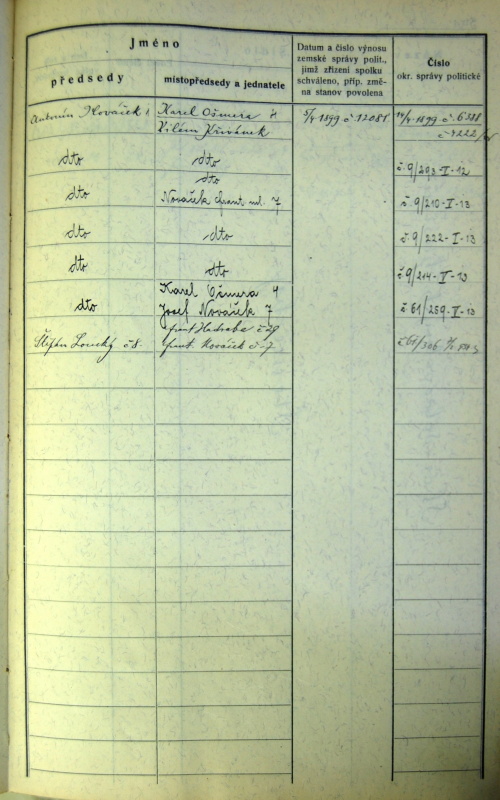 Jméno
předsedy
místopředsedy a jednatele
Datum a číslo výnosu
zemské správy polit.,
jímž zřízení spolku
schváleno, příp. změ-
na stanov povolena
Číslo
okr. správy politické
Antonín Nováček 1 Karel Ošmera 4 5/5 1899 č 12081 č. 6388
Vilém Křivánek č 4222
dto dto č 9/293-I-12
dto
dto Nováček frant ml. 7 č. 9/210-I-13
dto dto č. 9/222-I-13
dto dto č 9/214-I-13
Karel Ošmera 4
dto Josef Nováček 7 č 61/259-I-13
frant Hudraba č 29
Štěpán Loucký č 8. frant. Nováček č 7 č 61/306